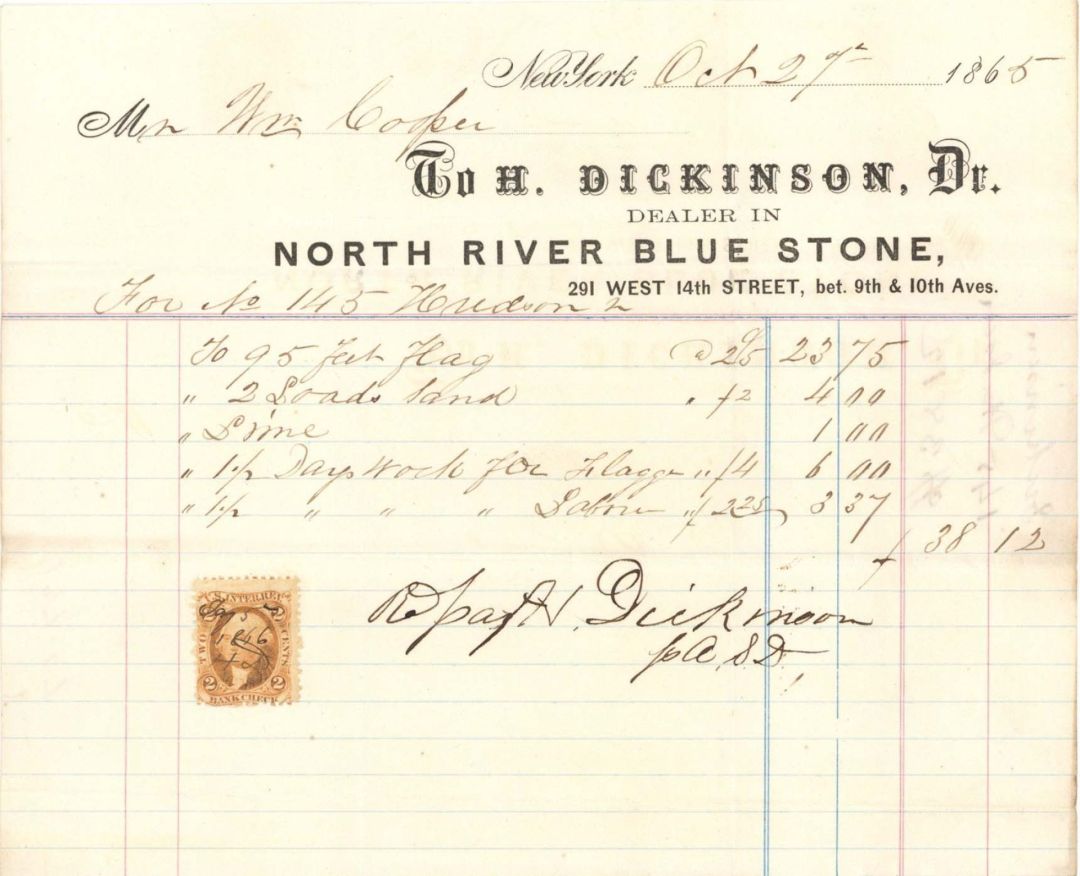 New York Oct 27th 1865
Mr Wm Cooper
To H. DICKINSON, Dr.
DEALER IN
NORTH RIVER BLUE STONE,
291 WEST 14th STREET, bet. 9th & 10th Aves.
For No 145 Hudson
To 95 feet Flag @ 25c 23 75
" 2 Loads Sand " $2 4 00
" Lime 1 00
" 1 1/2 Days Work for Flagger " $4 6 00
" 1 1/2 " " " Labor " $2 25 3 37
$ 38 12
H. Dickinson
U.S. INTER REV
TWO CENTS
1866
2 2
BANK CHECK